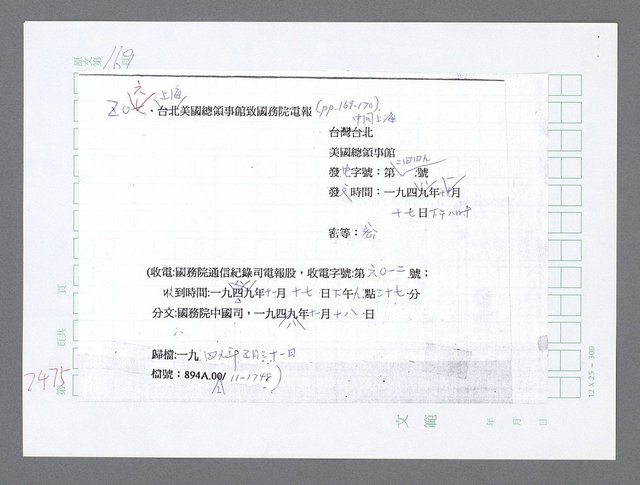 原文第169頁
六 上海
台北美國總領事館致國務院電報(pp.169-170)
中國上海
台灣台北
美國總領事館
二四四九
發電字號：第 號
發文時間：一九四九年十一月
十七日下午八時
密等：密
(收電:國務院通信紀錄司電報股，收電字號:第六0一二號；
收到時間:一九四九年十一月十七日下午九點三十七分
分文:國務院中國司，一九四九年十一月十八日
歸檔:一九四九年五月三十一日
檔號：894A.00/11-1748)
頁共 頁
第
7475
文範
年 月 日
12 X 25 - 300